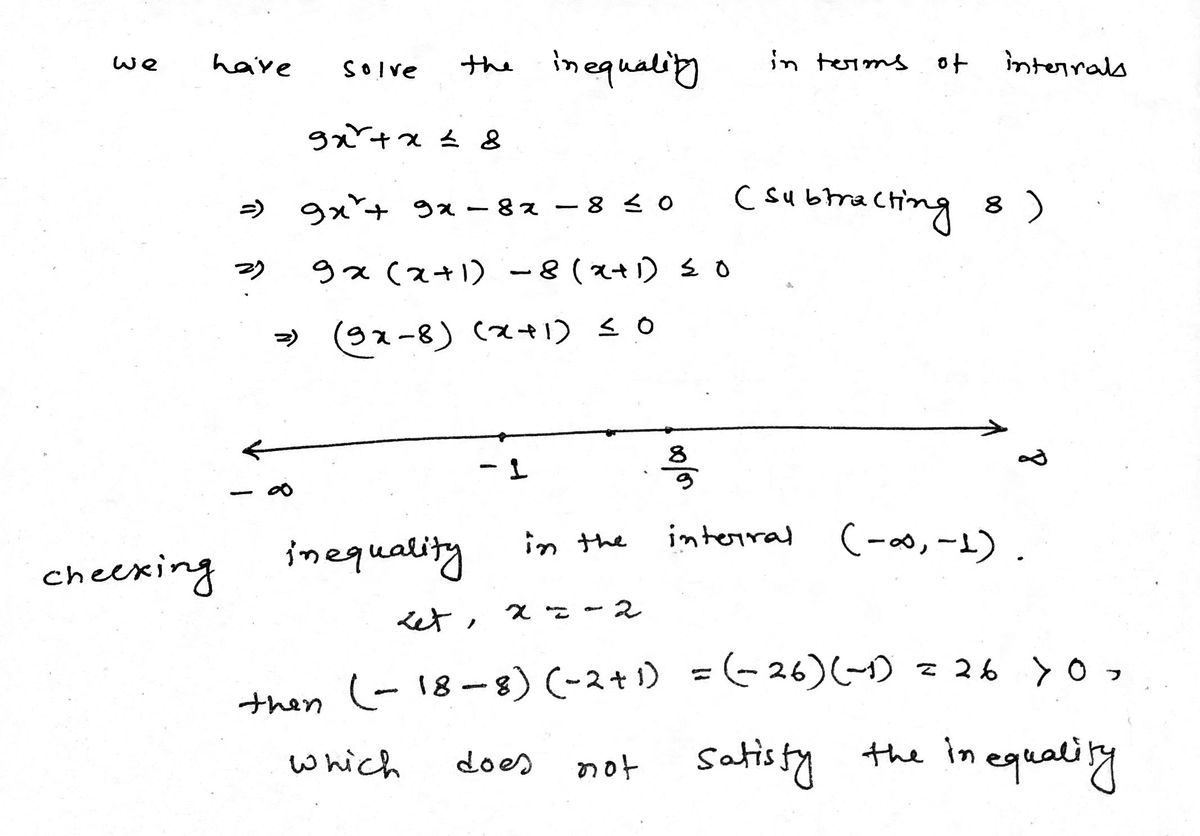 we have solve the inequality in terms of intervals
9x²+x ≤ 8
⇒ 9x²+ 9x – 8x – 8 ≤ 0 (subtracting 8)
⇒ 9x (x+1) – 8(x+1) ≤ 0
⇒ (9x–8) (x+1) ≤ 0
– ∞ – 1 8/9 ∞
checking inequality in the interval (–∞, –1).
Let, x = – 2
then (– 18 – 8) (–2+1) = (– 26)(–1) = 26 > 0,
which does not satisfy the inequality